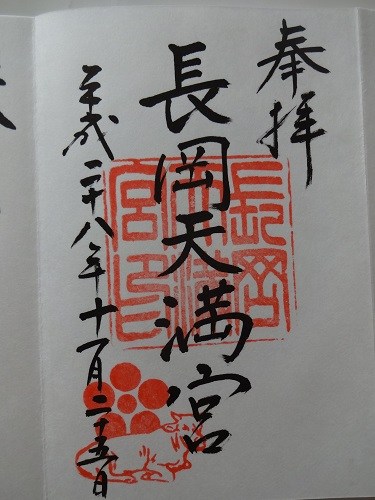 奉拝
長岡天満宮
平成二十八年十一月二十五日
長岡天満宮印